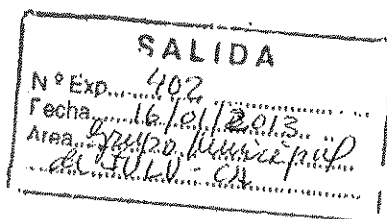 SALIDA
Nº Exp. 402
Fecha 16/01/2013
Area Grupo Municipal
de IULV-CA